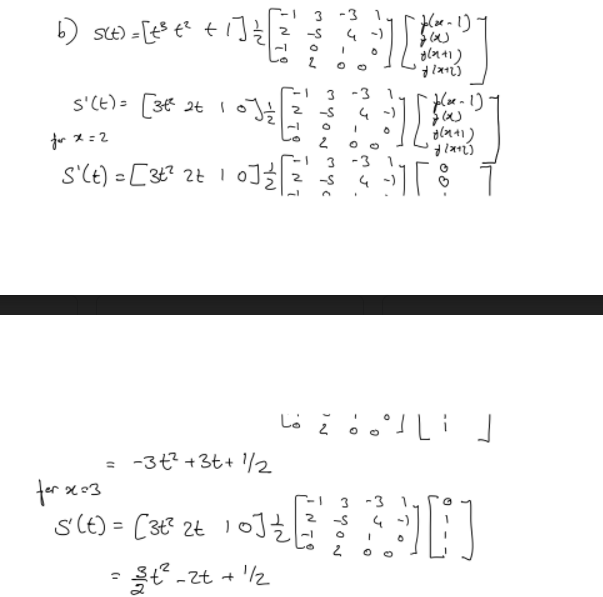 b) S(t) = [t³ t² t 1] 1/2 [-1 3 -3 1; 2 -5 4 -1; -1 0 1 0; 0 2 0 0] [f(x-1); f(x); f(x+1); f(x+2)]
S'(t) = [3t² 2t 1 0] 1/2 [-1 3 -3 1; 2 -5 4 -1; -1 0 1 0; 0 2 0 0] [f(x-1); f(x); f(x+1); f(x+2)]
for x = 2
S'(t) = [3t² 2t 1 0] 1/2 [-1 3 -3 1; 2 -5 4 -1; 
0 2 0 0] [0; 0; 1]
= -3t² + 3t + 1/2
for x = 3
S'(t) = [3t² 2t 1 0] 1/2 [-1 3 -3 1; 2 -5 4 -1; -1 0 1 0; 0 2 0 0] [0; 1; 1; 1]
= 3/2 t² - 2t + 1/2